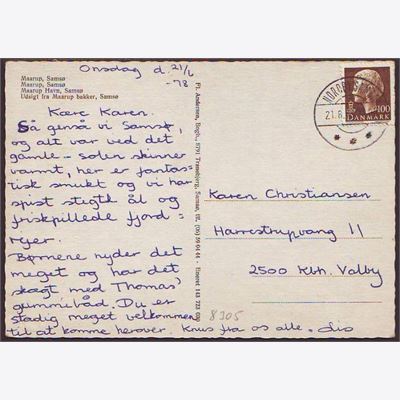 Onsdag d. 21/6
-78
Maarup, Samsø
Maarup, Samsø
Maarup Havn, Samsø
Udsigt fra Maarup bakker, Samsø
Kære Karen.
Så genså vi Samsø,
og alt var ved det
gamle - solen skinner
varmt, her er fantas=
tisk smukt og vi har
spist stegte ål og
friskpillede fjord=
rejer.
Børnene nyder det
meget og har det
skægt med Thomas'
gummibåd. Du er
stadig meget velkommen
til at komme herover. Knus fra os alle.
Fl. Andersen, Bogh., 8791 Tranebjerg, Samsø, tlf. (06) 59 04 44 - Eneret 143 723 030
21.6.
100
DANMARK
Karen Christiansen
Harrestrupvang 11
2500 Kbh. Valby
8305